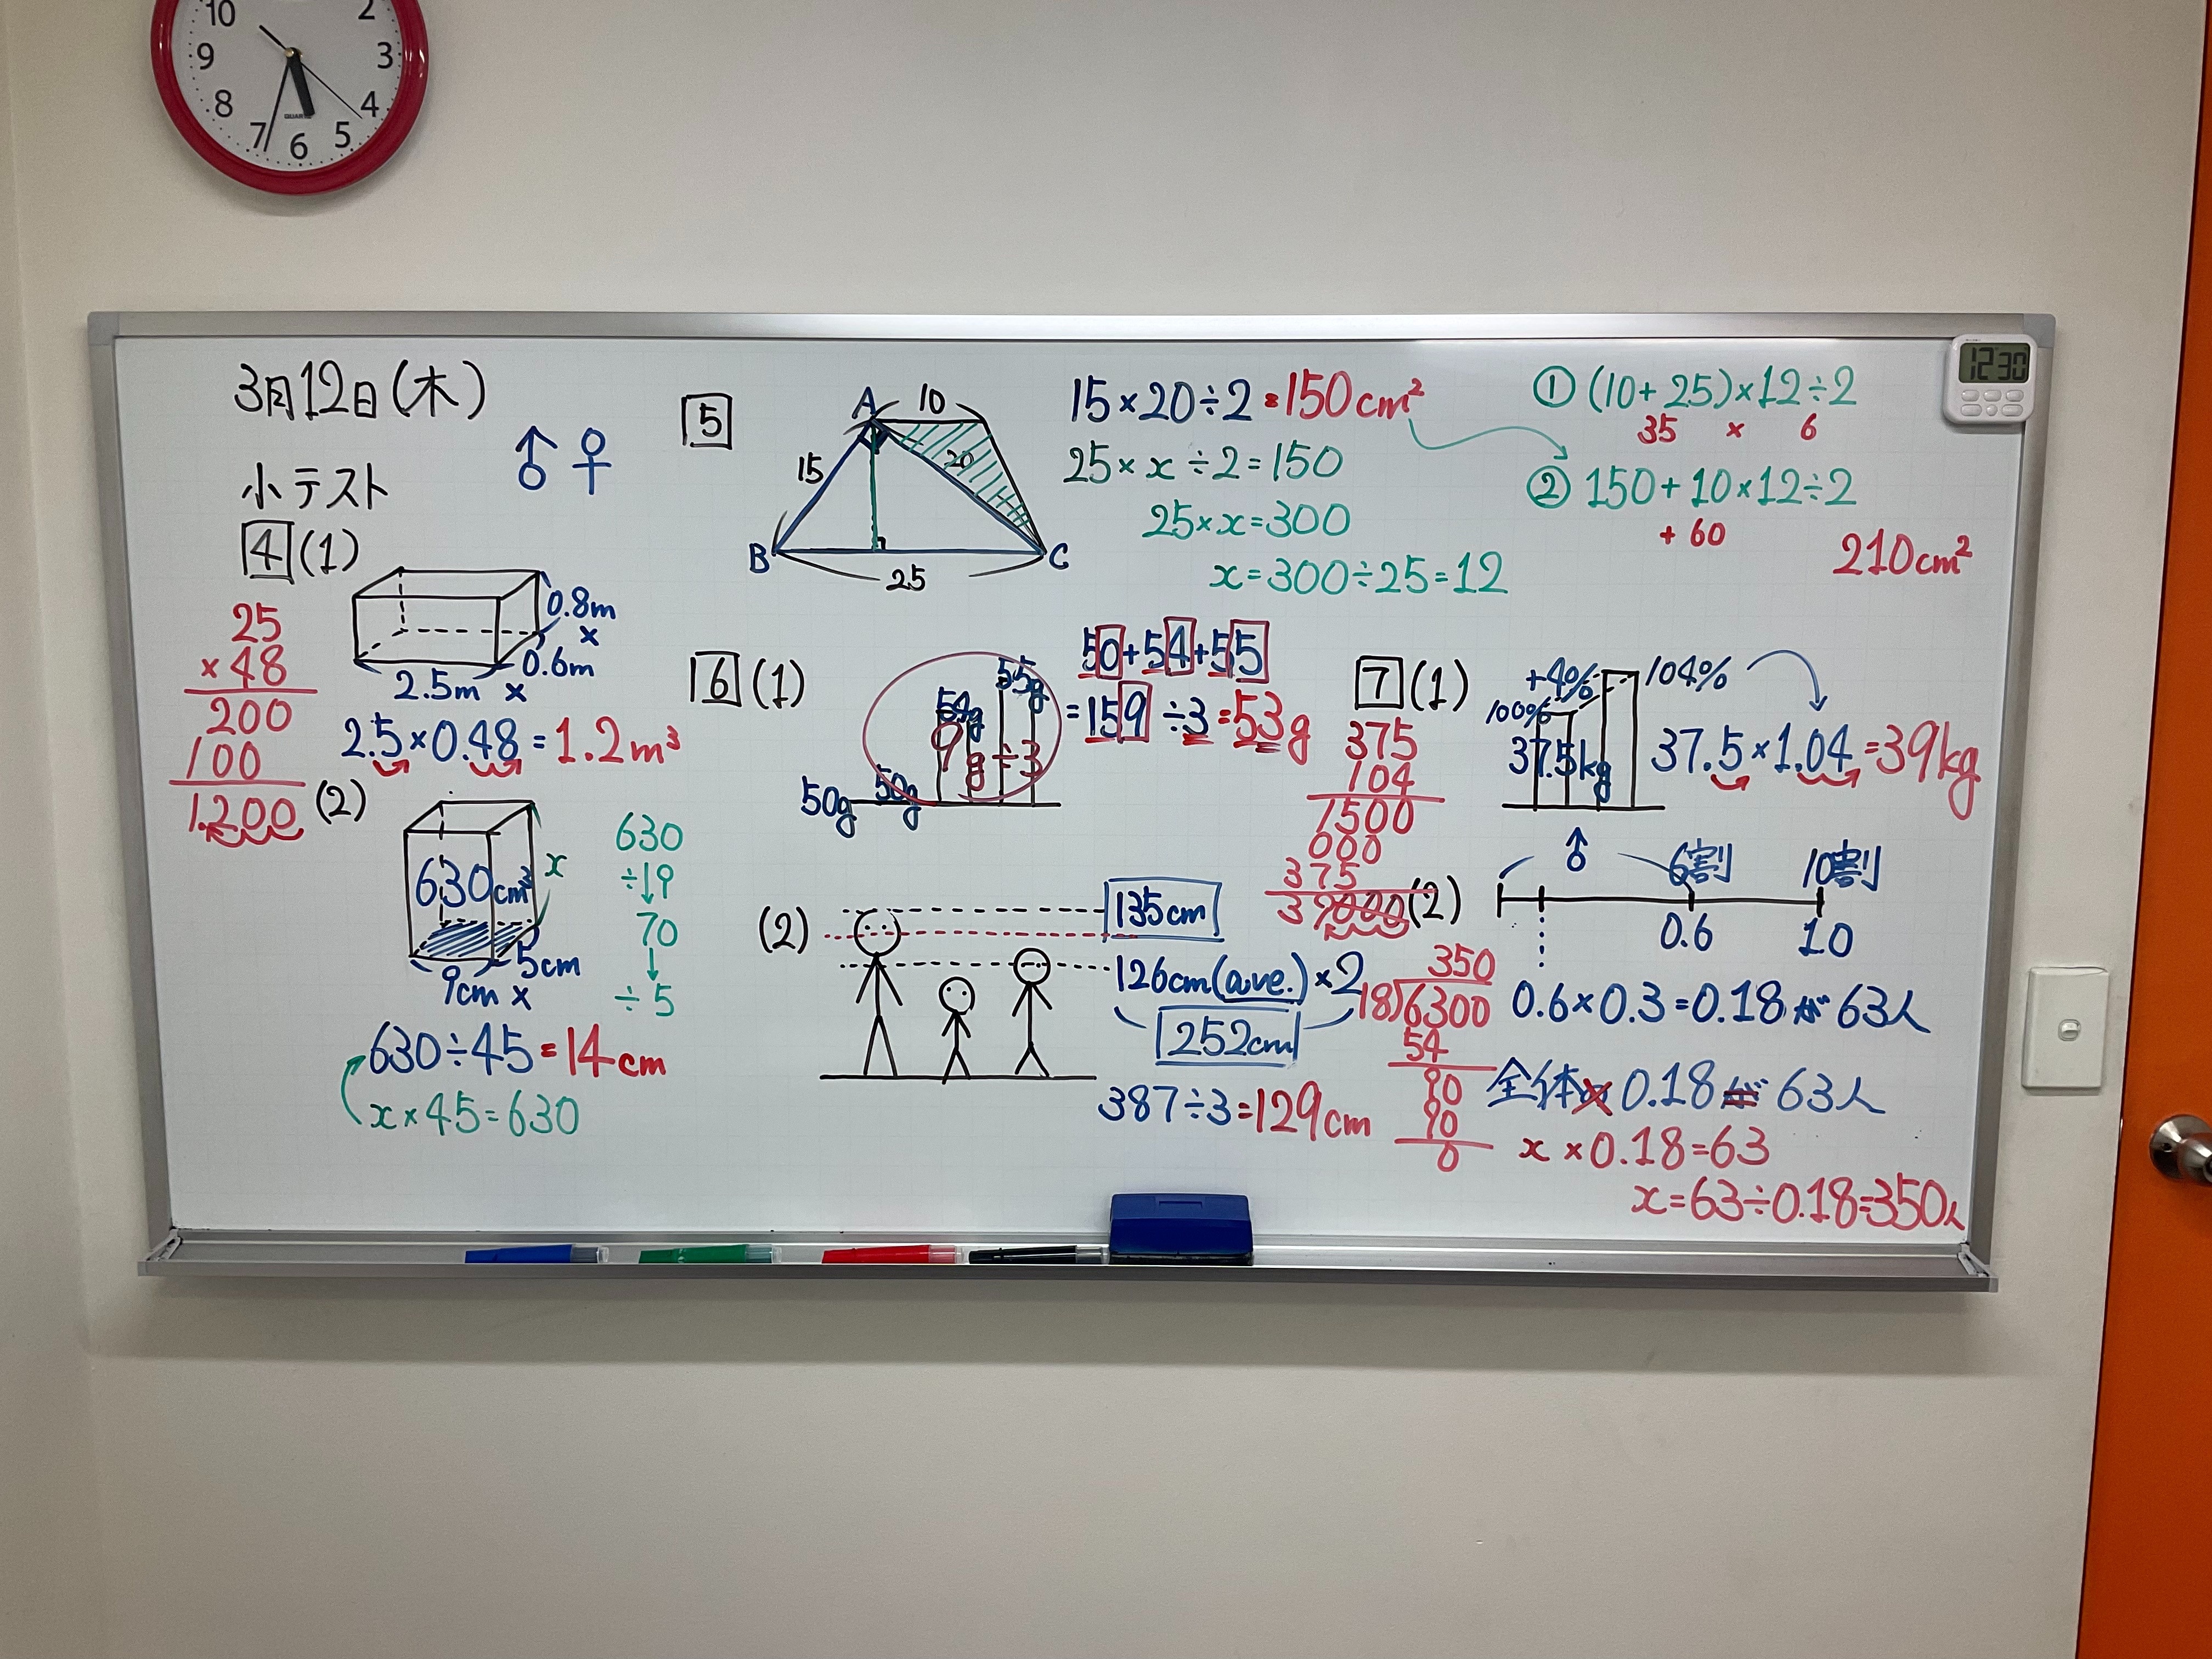 10
2
9
3
8
4
7
6
5
QUARTZ
12 30
3月12日(木)
小テスト
♂ ♀
4 (1)
0.8m
×
0.6m
2.5m ×
25
×48
200
100
1.200
2.5×0.48=1.2m³
(2)
630cm³
x
5cm
9cm ×
630
÷↓9
70
↓
÷5
630÷45=14cm
x×45=630
5
A
10
15
20
B
25
C
15×20÷2=150cm²
25×x÷2=150
25×x=300
x=300÷25=12
① (10+25)×12÷2
35 × 6
② 150+10×12÷2
+60
210cm²
6 (1)
50g
50g
54g
55g
9g÷3
50+54+55
=159÷3=53g
(2)
135cm
126cm(ave.)×2
252cm
387÷3=129cm
7 (1)
100%
+4%
104%
37.5kg
37.5×1.04=39kg
375
104
1500
000
375
39000
(2)
♂
6割
10割
0.6
1.0
350
18)6300
54
90
90
0
0.6×0.3=0.18が63人
全体の0.18が63人
x×0.18=63
x=63÷0.18=350人